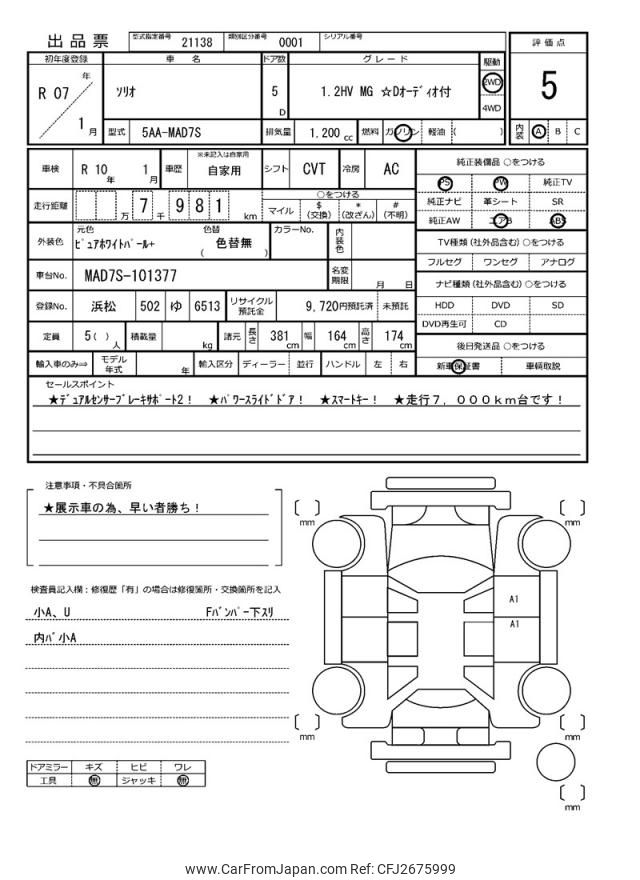 出品票 型式指定番号 21138 類別区分番号 0001 シリアル番号
評価点
5
内装 A B C
初年度登録 車名 ドア数 グレード 駆動
R 07 年 1 月
ソリオ
5 D
1.2HV MG ☆Dオーディオ付
2WD
4WD
型式 5AA-MAD7S 排気量 1.200 cc 燃料 ガソリン 軽油 ( )
車検 R 10 年 1 月 車歴 ※未記入は自家用 自家用 シフト CVT 冷房 AC
走行距離 万 7 千 9 8 1 km
○をつける
マイル $ (交換) * (改ざん) # (不明)
外装色 元色 ピュアホワイトパール+ 色替 ( 色替無 ) カラーNo. 内装色
車台No. MAD7S-101377 名変期限 月 日
登録No. 浜松 502 ゆ 6513 リサイクル預託金 9,720円預託済 未預託
定員 5( ) 人 積載量 kg 諸元 長さ 381 cm 幅 164 cm 高さ 174 cm
輸入車のみ⇒ モデル年式 年 輸入区分 ディーラー 並行 ハンドル 左 右
純正装備品 ○をつける
PS PW 純正TV
純正ナビ 革シート SR
純正AW エアB ABS
TV種類 (社外品含む) ○をつける
フルセグ ワンセグ アナログ
ナビ種類 (社外品含む) ○をつける
HDD DVD SD
DVD再生可 CD
後日発送品 ○をつける
新車保証書 車輌取説
セールスポイント
★デュアルセンサーブレーキサポート2! ★パワースライドドア! ★スマートキー! ★走行7,000km台です!
注意事項・不具合箇所
★展示車の為、早い者勝ち!
検査員記入欄:修復歴「有」の場合は修復箇所・交換箇所を記入
小A、U Fバンパー下スリ
内バ小A
ドアミラー キズ ヒビ ワレ
工具 無 ジャッキ 無
mm
mm
A1
A1
mm
mm
mm
www.CarFromJapan.com Ref: CFJ2675999